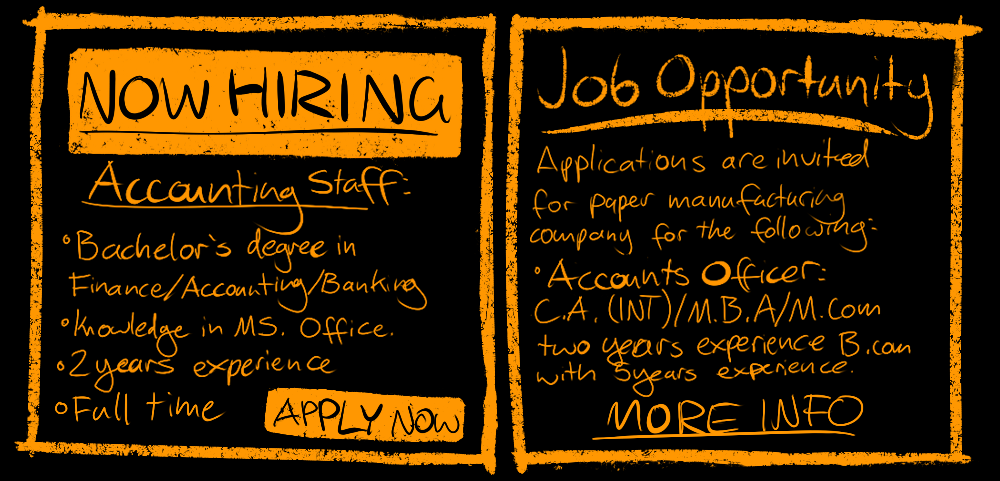 NOW HIRING
Accounting Staff:
• Bachelor's degree in
Finance/Accounting/Banking
• Knowledge in MS. Office.
• 2 years experience
• Full time
APPLY NOW
Job Opportunity
Applications are invited
for paper manufacturing
company for the following:
• Accounts Officer:
C.A. (INT)/M.B.A/M.Com
two years experience B.com
with 5years experience.
MORE INFO